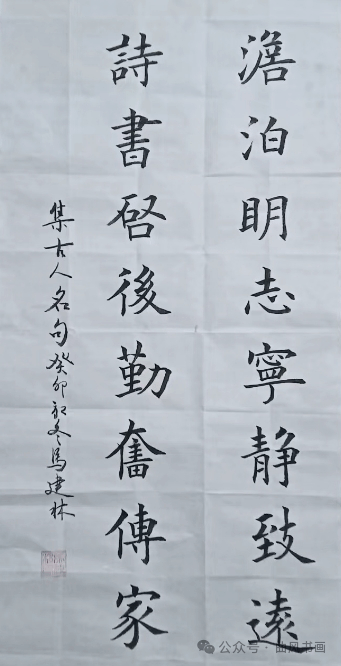 澹泊明志寧静致遠
詩書啓後勤奮傳家
集古人名句癸卯初冬馬建林
公众号·曲风书画